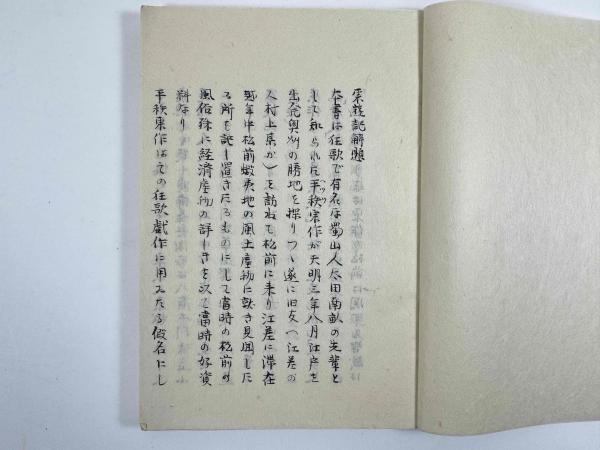 東遊記解題
本書は狂歌で有名な蜀山人太田南畝の先輩と
して知られた平秩東作が天明三年八月江戸を
出発奥州の勝地を探りつゝ遂に旧友(江差の
人村上系か)を訪ねて松前に来り江差に滞在
越年中松前蝦夷地の風土産物に就き見聞した
る所を記し置きたるものにして當時の松前の
風俗殊に経済産物の詳しきを以て當時の好資
料なり
平秩東作は之の狂歌戯作に用ゐたる假名にし